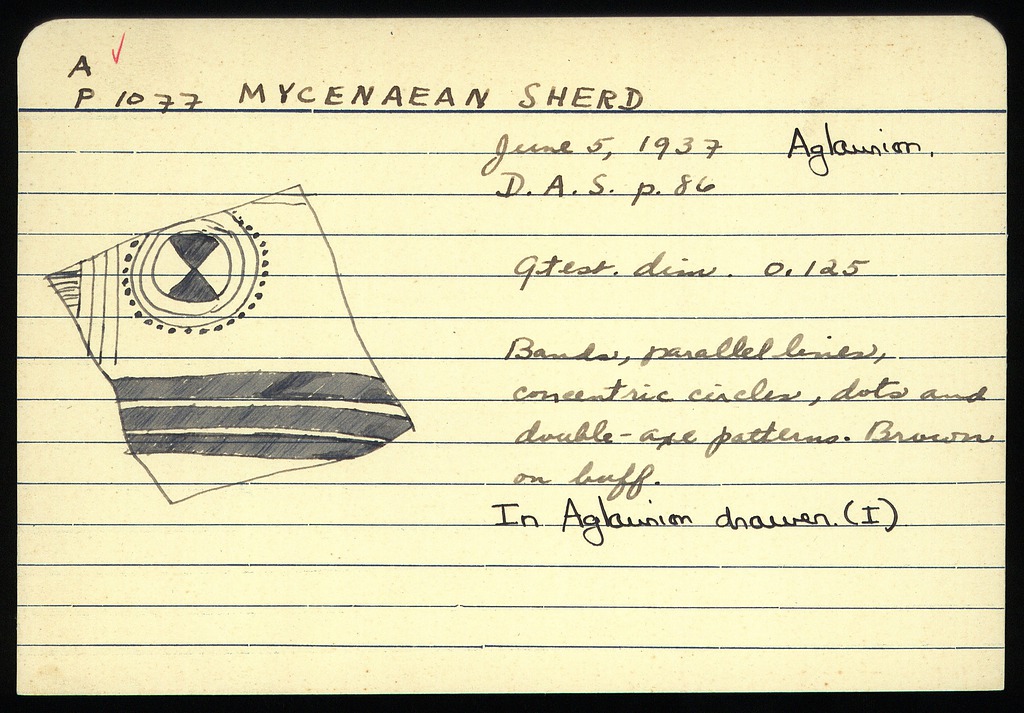 A
P 1077 MYCENAEAN SHERD
June 5, 1937 Aglaurion.
D.A.S. p. 86
Gtest. dim. 0.125
Bands, parallel lines,
concentric circles, dots and
double-axe patterns. Brown
on buff.
In Aglaurion drawer. (I)